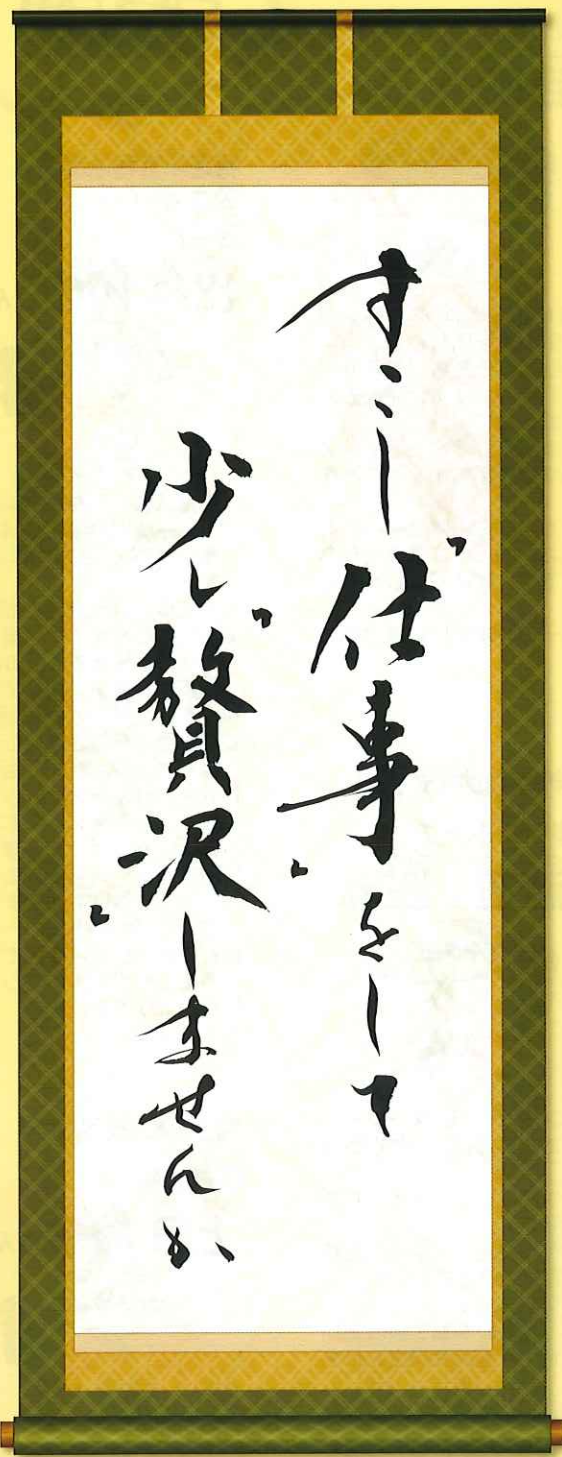 すこし「仕事」をして
少し「贅沢」しませんか